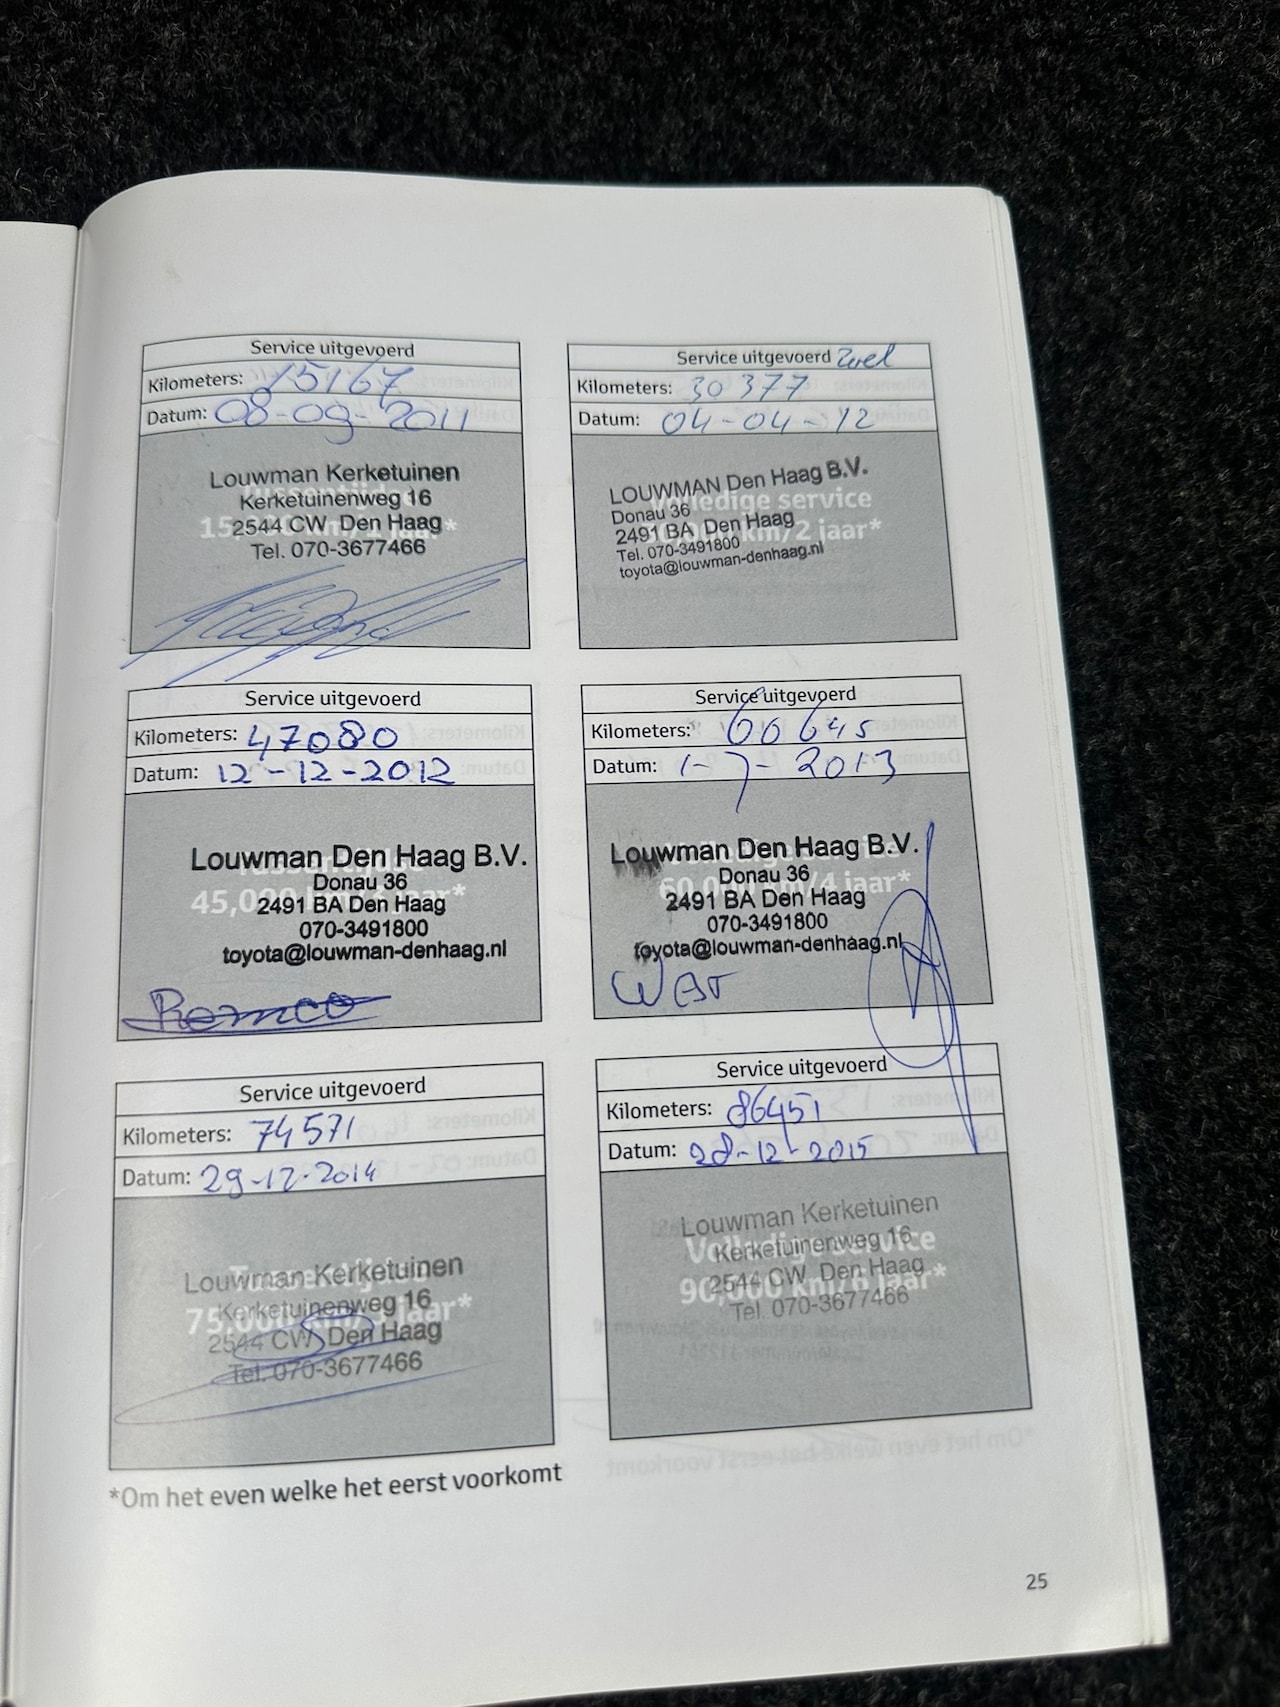 Service uitgevoerd
Kilometers: 15167
Datum: 08-09-2011
Louwman Kerketuinen
Kerketuinenweg 16
2544 CW Den Haag
Tel. 070-3677466
Service uitgevoerd
Kilometers: 30377
Datum: 04-04-12
Volledige service
km/2 jaar*
LOUWMAN Den Haag B.V.
Donau 36
2491 BA Den Haag
Tel. 070-3491800
toyota@louwman-denhaag.nl
Service uitgevoerd
Kilometers: 47080
Datum: 12-12-2012
Louwman Den Haag B.V.
Donau 36
2491 BA Den Haag
070-3491800
toyota@louwman-denhaag.nl
Remco
Service uitgevoerd
Kilometers: 60645
Datum: 1-7-2013
Volledige service
60,000 km/4 jaar*
Louwman Den Haag B.V.
Donau 36
2491 BA Den Haag
070-3491800
toyota@louwman-denhaag.nl
Service uitgevoerd
Kilometers: 74571
Datum: 29-12-2014
Louwman Kerketuinen
Kerketuinenweg 16
2544 CW Den Haag
Tel. 070-3677466
Service uitgevoerd
Kilometers: 86451
Datum: 28-12-2015
Volledige service
90,000 km/6 jaar*
Louwman Kerketuinen
Kerketuinenweg 16
2544 CW Den Haag
Tel. 070-3677466
*Om het even welke het eerst voorkomt
25